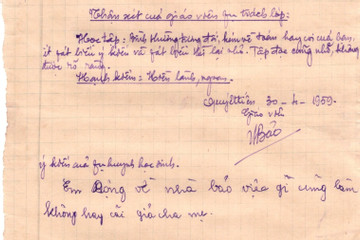 Nhận xét của giáo viên phụ trách lớp:
Học tập: bình thường, kém về toán hay coi của bạn,
ít phát biểu ý kiến về phát biểu thì lại nhỏ. Tập đọc cũng nhỏ, không
được rõ ràng.
Hạnh kiểm: Hiền lành, ngoan.
30-4-1959.
Giáo viên
Bảo
ý kiến của phụ huynh học sinh.
Em Đặng về nhà bảo việc gì cũng làm
không hay cãi giả cha mẹ.